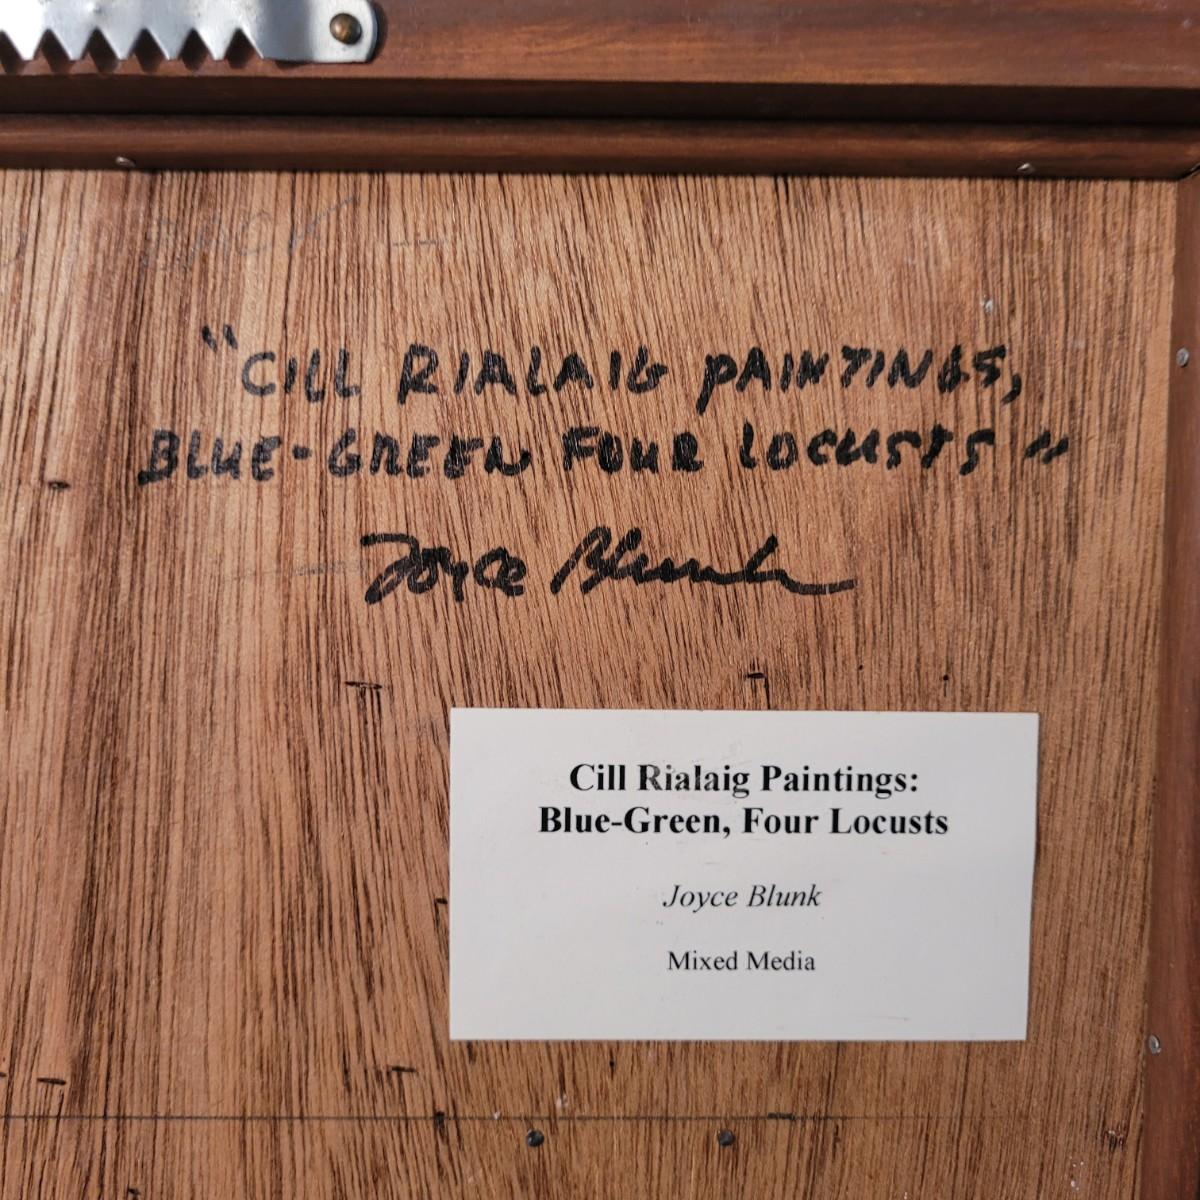 BACK
"CILL RIALAIG PAINTINGS,
BLUE-GREEN FOUR LOCUSTS"
Joyce Blunk
Cill Rialaig Paintings:
Blue-Green, Four Locusts
Joyce Blunk
Mixed Media